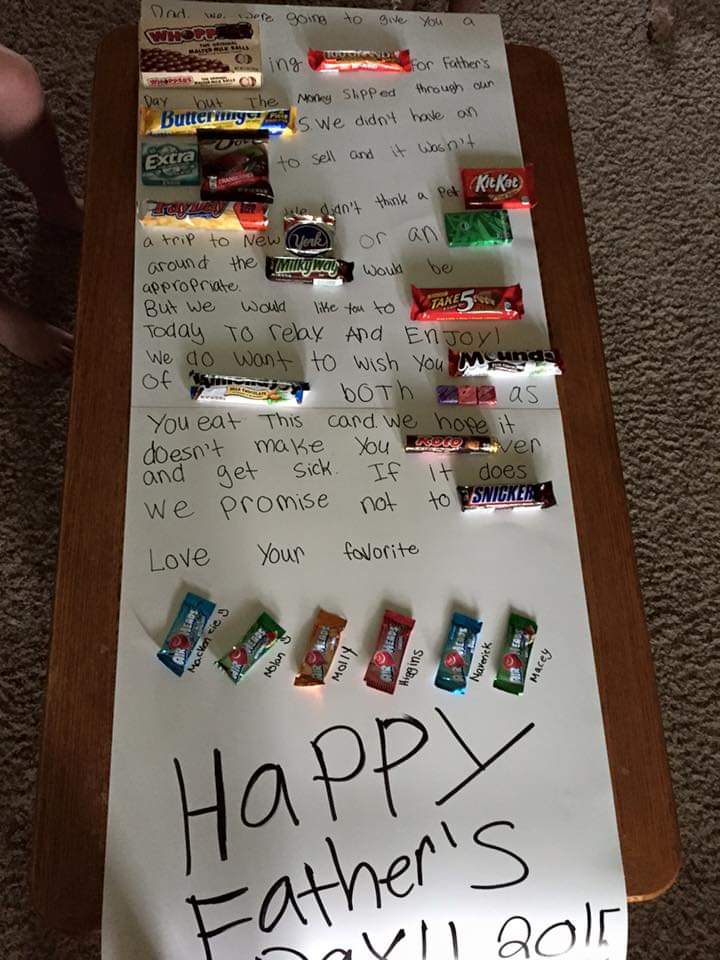 Dad, we were going to give you a
WHOPPERS THE ORIGINAL MALTED MILK BALLS ing 100 GRAND for Father's
Day but The Money Slipped through our
Butterfinger s. We didn't have an
Extra Dove CRANBERRIES to sell and it wasn't
PayDay we didn't think a Pet Kit Kat
a trip to New York or an
around the MilkyWay would be
appropriate.
But we would like you to TAKE5
Today To relax And Enjoy!
We do want to wish you Mounds
of Almond Joy both as
You eat This card. We hope it
doesn't make You ROLO ver
and get sick. If It does
we promise not to SNICKERS
Love Your favorite
AIRHEADS AIRHEADS AIRHEADS AIRHEADS AIRHEADS AIRHEADS
Mackenzie Nolan Molly Higgins Maverick Macey
Happy
Father's
Day!! 2015